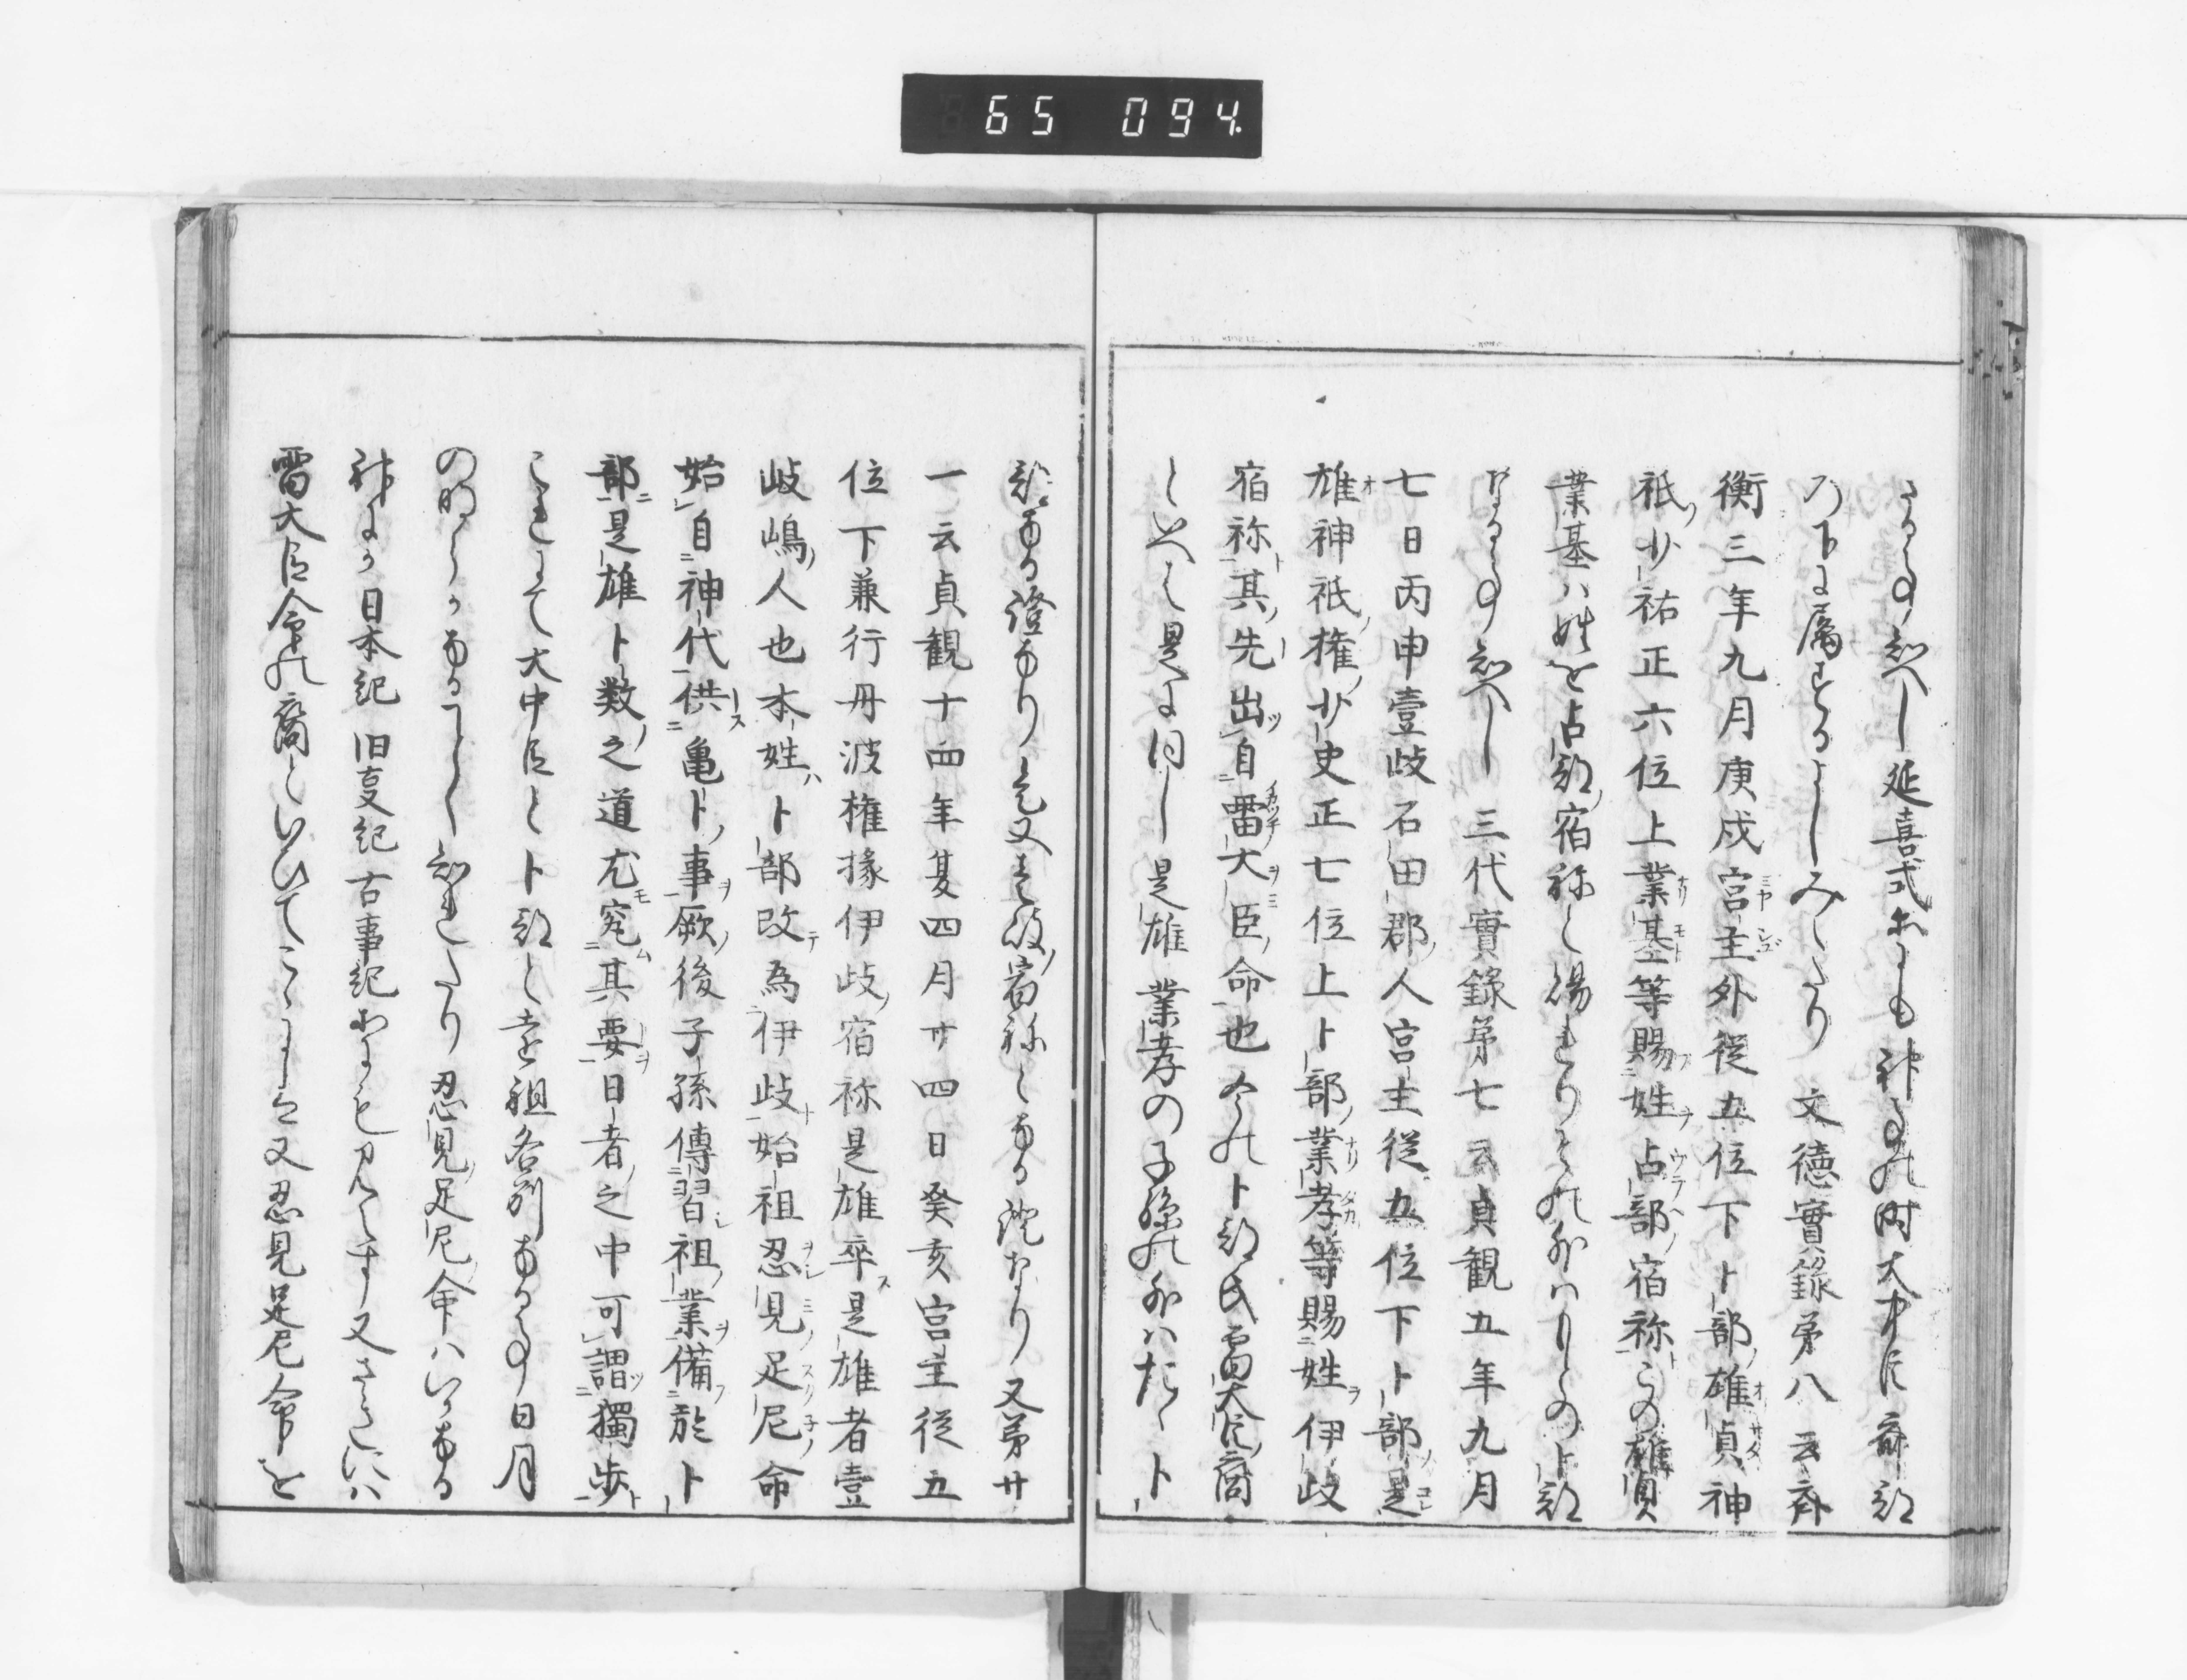 65 094.
さる事知へし延喜式等にも神事の時大中臣斎部
の下に属するよしみへたり文徳實録第八云斉
衡三年九月庚戌宮主外従五位下卜部雄貞神
祇少祐正六位上業基等賜姓占部宿祢この雄貞
業基ハ姓を占部宿祢と賜れりその外ハもとの卜部
なる事知へし三代實録第七云貞観五年九月
七日丙申壹歧石田郡人宮主従五位下卜部是
雄神祇権少史正七位上卜部業孝等賜姓伊歧
宿祢其先出自雷大臣命也今の卜部氏雷大臣裔
といへは是に同し是雄業孝の子孫の外ハたゝ卜
部なる證なり
一云貞観十四年夏四月廿四日癸亥宮主従五
位下兼行丹波権掾伊歧宿祢是雄卒是雄者壹
歧嶋人也本姓卜部改為伊歧始祖忍見足尼命
始自神代供亀卜事厥後子孫傳習祖業備於卜
部是雄卜数之道尤究其要日者之中可謂獨歩
これにて大中臣と卜部と遠祖各別なる事日月
の明らかなることく知れたり忍見足尼命ハいかなる
神にか日本記旧事記古事記等にも見へす又さらにハ
雷大臣命の裔といひてこゝには又忍見足尼命を